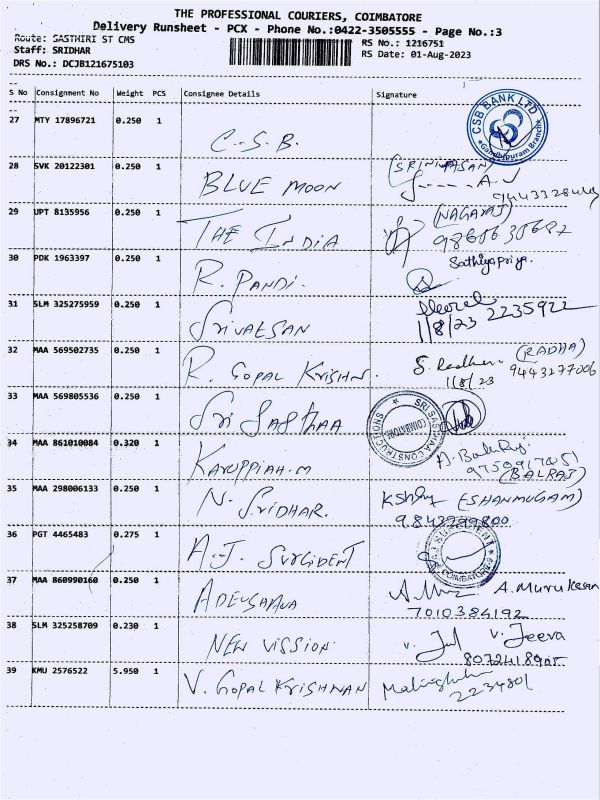 THE PROFESSIONAL COURIERS, COIMBATORE
Delivery Runsheet - PCX - Phone No.:0422-3505555 - Page No.:3
Route: SASTHIRI ST CMS
RS No.: 1216751
Staff: SRIDHAR
RS Date: 01-Aug-2023
DRS No.: DCJB121675103
S No Consignment No Weight PCS Consignee Details Signature
27 MTY 17896721 0.250 1
C.S.B.
CSB BANK LTD
Gandhipuram Branch
28 SVK 20122301 0.250 1 (SRINIVASAN)
BLUE MOON
29 UPT 8135956 0.250 1 (NAGARAJ)
THE INDIA
30 PDK 1963397 0.250 1 Sathiyapriya.
R. PANDI.
31 SLM 325275959 0.250 1
2235922
SRIVATSAN 1/8/23
32 MAA 569502735 0.250 1 (RADHA)
R. GOPAL KRISHN. 1/8/23 9443277006
33 MAA 569805536 0.250 1
SRI SASTHAA
SRI SASTHAA CONSTRUCTIONS
COIMBATORE
34 MAA 861010084 0.320 1
KARUPPIAH.M
(BALRAJ)
35 MAA 298006133 0.250 1 (SHANMUGAM)
N. SRIDHAR.
36 PGT 4465483 0.275 1
A.J. SURGIDENT
COIMBATORE
37 MAA 860990160 0.250 1 A. Murukesan
7010384192
38 SLM 325258709 0.230 1 V. Jeeva
NEW VISSION.
39 KMU 2576522 5.950 1
V. GOPAL KRISHNAN
2234801